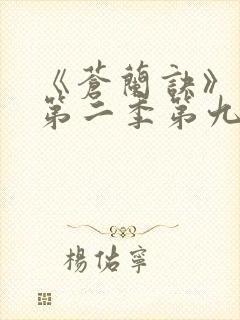 《蒼蘭訣》
第二季第九
楊佑寧